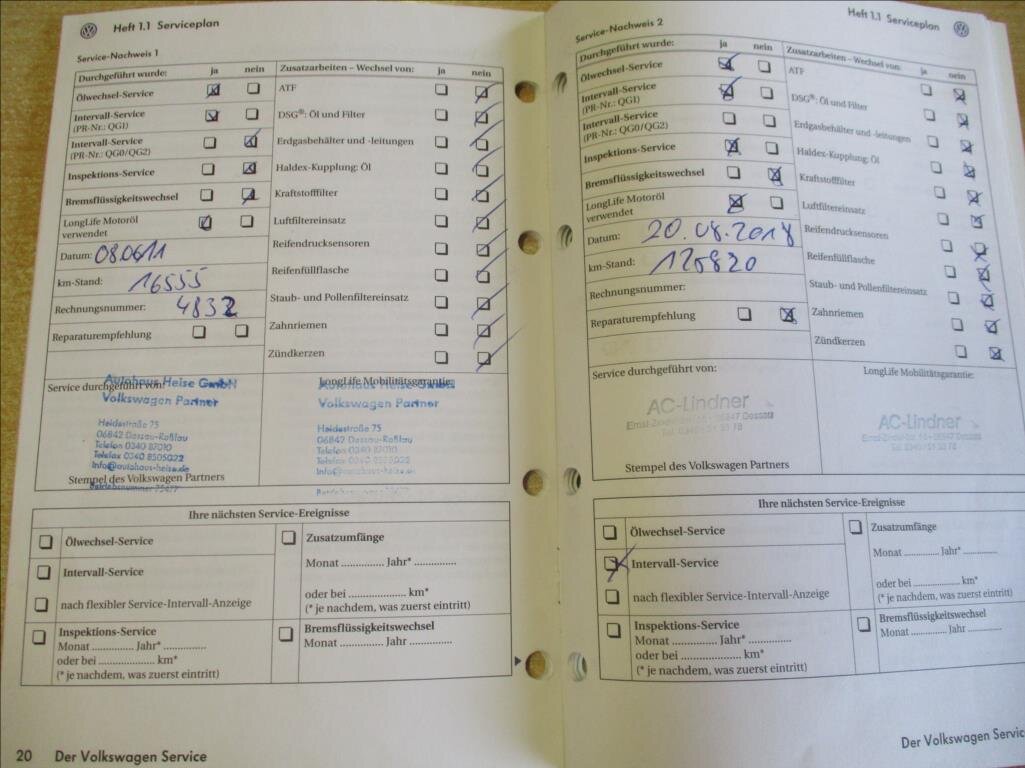 Heft 1.1 Serviceplan
Service-Nachweis 1
Durchgeführt wurde: ja nein
Ölwechsel-Service
Intervall-Service
(PR-Nr.: QG1)
Intervall-Service
(PR-Nr.: QG0/QG2)
Inspektions-Service
Bremsflüssigkeitswechsel
LongLife Motoröl
verwendet
Datum: 08.06.11
km-Stand: 16555
Rechnungsnummer: 4832
Reparaturempfehlung
Zusatzarbeiten – Wechsel von: ja nein
ATF
DSG®: Öl und Filter
Erdgasbehälter und -leitungen
Haldex-Kupplung: Öl
Kraftstofffilter
Luftfiltereinsatz
Reifendrucksensoren
Reifenfüllflasche
Staub- und Pollenfiltereinsatz
Zahnriemen
Zündkerzen
Service durchgeführt von:
Autohaus Heise GmbH
Volkswagen Partner
Heidestraße 75
06842 Dessau-Roßlau
Telefon 0340 87010
Telefax 0340 8505022
Info@autohaus-heise.de
LongLife Mobilitätsgarantie:
Volkswagen Partner
Heidestraße 75
06842 Dessau-Roßlau
Telefon 0340 87010
Telefax 0340 8505022
Info@autohaus-heise.de
Stempel des Volkswagen Partners
Ihre nächsten Service-Ereignisse
Ölwechsel-Service
Intervall-Service
nach flexibler Service-Intervall-Anzeige
Inspektions-Service
Monat .............. Jahr* ..............
oder bei .................... km*
(* je nachdem, was zuerst eintritt)
Zusatzumfänge
Monat .............. Jahr* ..............
oder bei .................... km*
(* je nachdem, was zuerst eintritt)
Bremsflüssigkeitswechsel
Monat .............. Jahr ..............
20 Der Volkswagen Service
Heft 1.1 Serviceplan
Service-Nachweis 2
Durchgeführt wurde: ja nein
Ölwechsel-Service
Intervall-Service
(PR-Nr.: QG1)
Intervall-Service
(PR-Nr.: QG0/QG2)
Inspektions-Service
Bremsflüssigkeitswechsel
LongLife Motoröl
verwendet
Datum: 20.08.2018
km-Stand: 125820
Rechnungsnummer:
Reparaturempfehlung
Zusatzarbeiten – Wechsel von: ja nein
ATF
DSG®: Öl und Filter
Erdgasbehälter und -leitungen
Haldex-Kupplung: Öl
Kraftstofffilter
Luftfiltereinsatz
Reifendrucksensoren
Reifenfüllflasche
Staub- und Pollenfiltereinsatz
Zahnriemen
Zündkerzen
Service durchgeführt von:
AC-Lindner
LongLife Mobilitätsgarantie:
AC-Lindner
Stempel des Volkswagen Partners
Ihre nächsten Service-Ereignisse
Ölwechsel-Service
Intervall-Service
nach flexibler Service-Intervall-Anzeige
Inspektions-Service
Monat .............. Jahr* ..............
oder bei .................... km*
(* je nachdem, was zuerst eintritt)
Zusatzumfänge
Monat .............. Jahr* ..............
oder bei .................... km*
(* je nachdem, was zuerst eintritt)
Bremsflüssigkeitswechsel
Monat .............. Jahr ..............
Der Volkswagen Servic